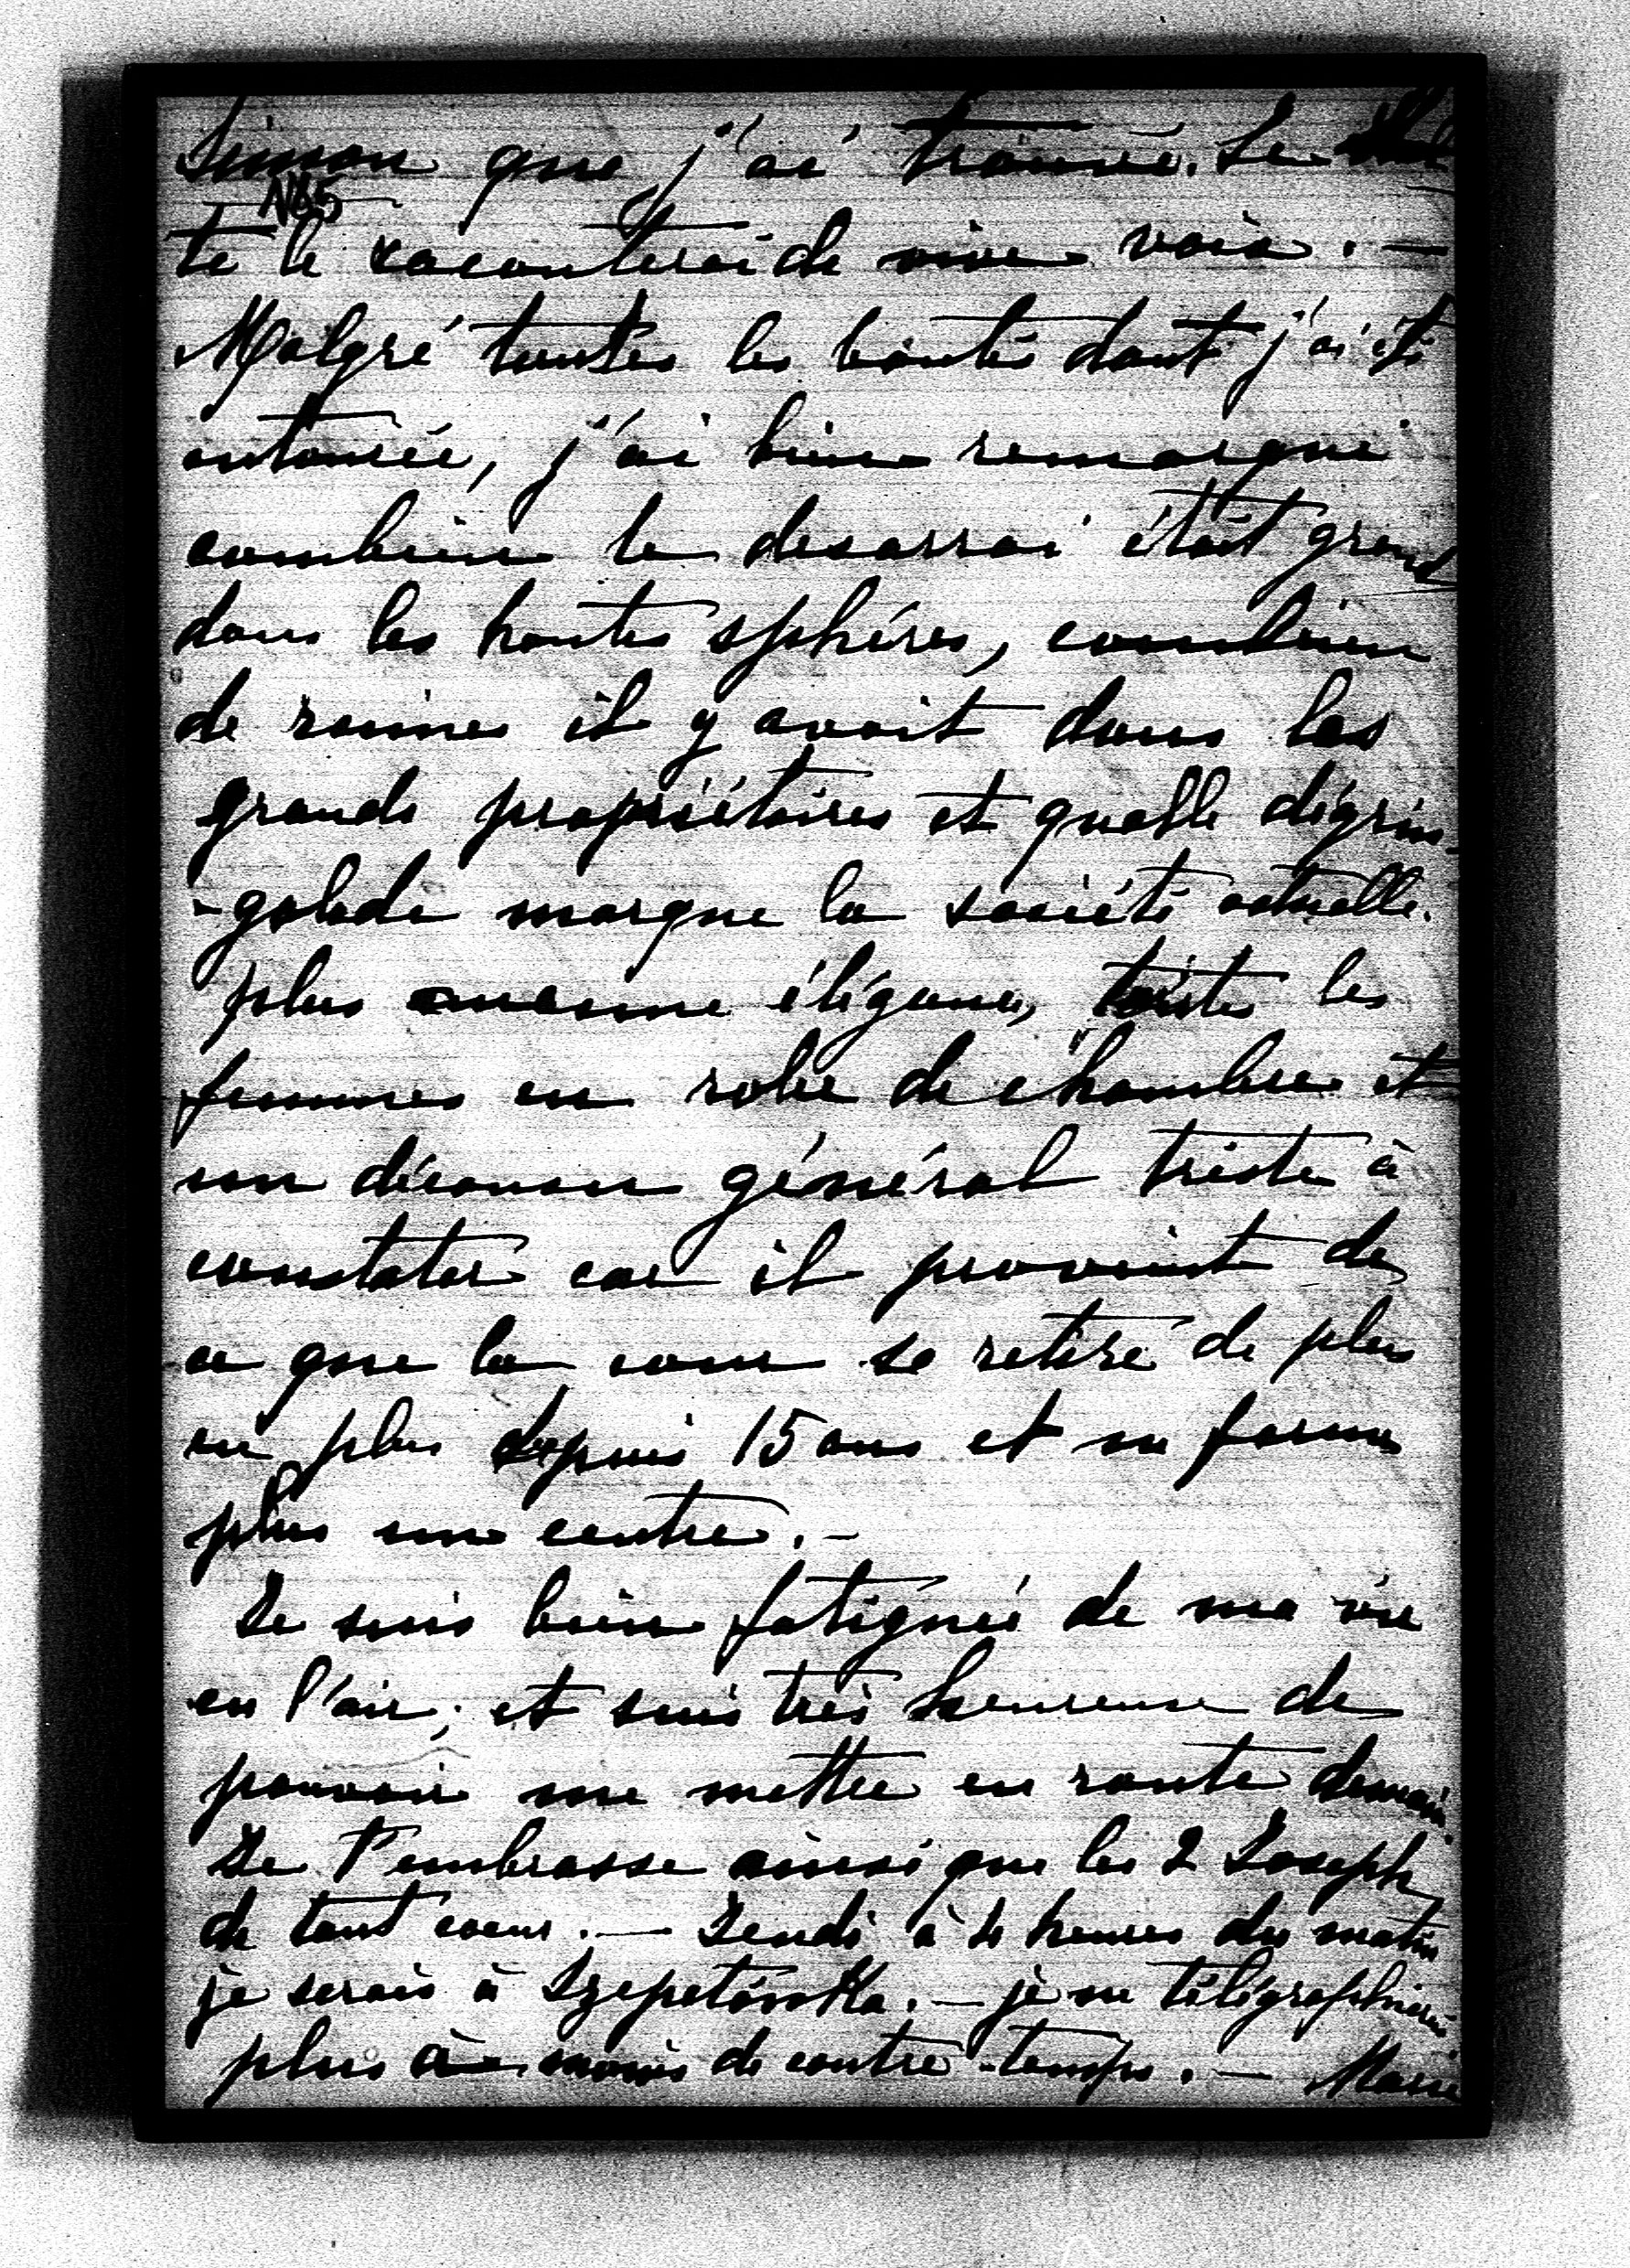 Simon que j'ai trouvé. Je
No 5
te le raconterai de vive voix. —
Malgré toutes les bontés dont j'ai été
entourée, j'ai bien remarqué
combien le desarroi était grand
dans les hautes sphères, combien
de ruines il y avait dans les
grands propriétaires et quelle dégrin-
-golade marque la société actuelle.
plus aucune élégance, toutes les
femmes en robe de chambre et
un décousu général triste à
constater car il provient de
ce que la cour se retire de plus
en plus depuis 15 ans et ne forme
plus un centre. —
Je suis bien fatiguée de ma vie
en l'air, et suis très heureuse de
pouvoir me mettre en route demain
Je t'embrasse ainsi que les 2 Joseph
de tout coeur. — Jeudi à 4 heures du matin
je serais à Szepetówka. — je ne télégraphierai
plus à moins de contre-temps. — Marie